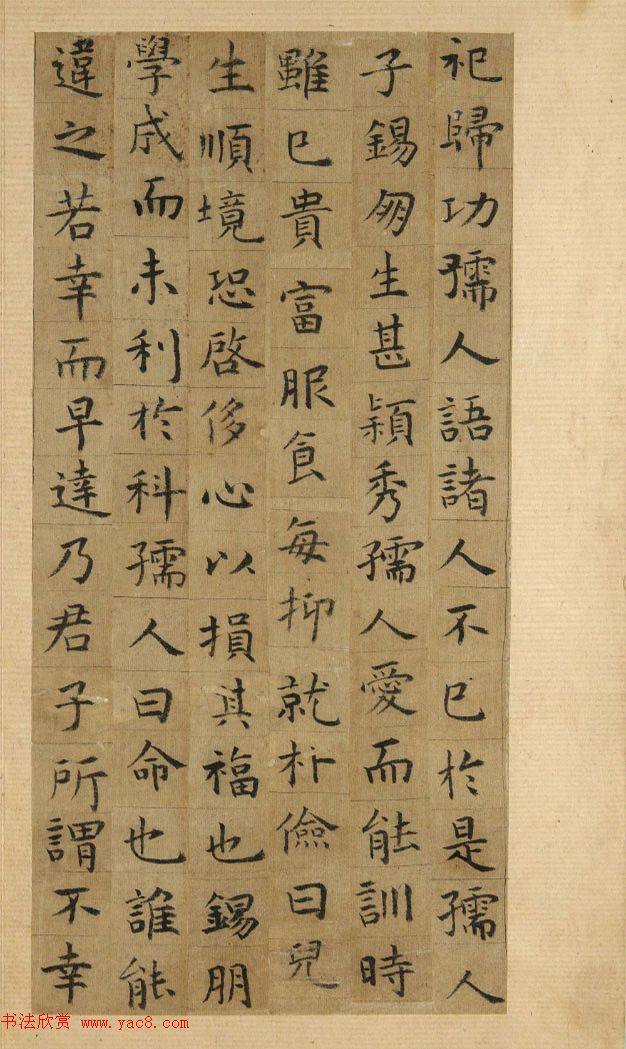 祀歸功孺人語諸人不已於是孺人
子錫朋生甚穎秀孺人愛而能訓時
雖已貴富服食每抑就朴儉曰兒
生順境恐啓侈心以損其福也錫朋
學成而未利於科孺人曰命也誰能
違之若幸而早達乃君子所謂不幸
书法欣赏 www.yac8.com